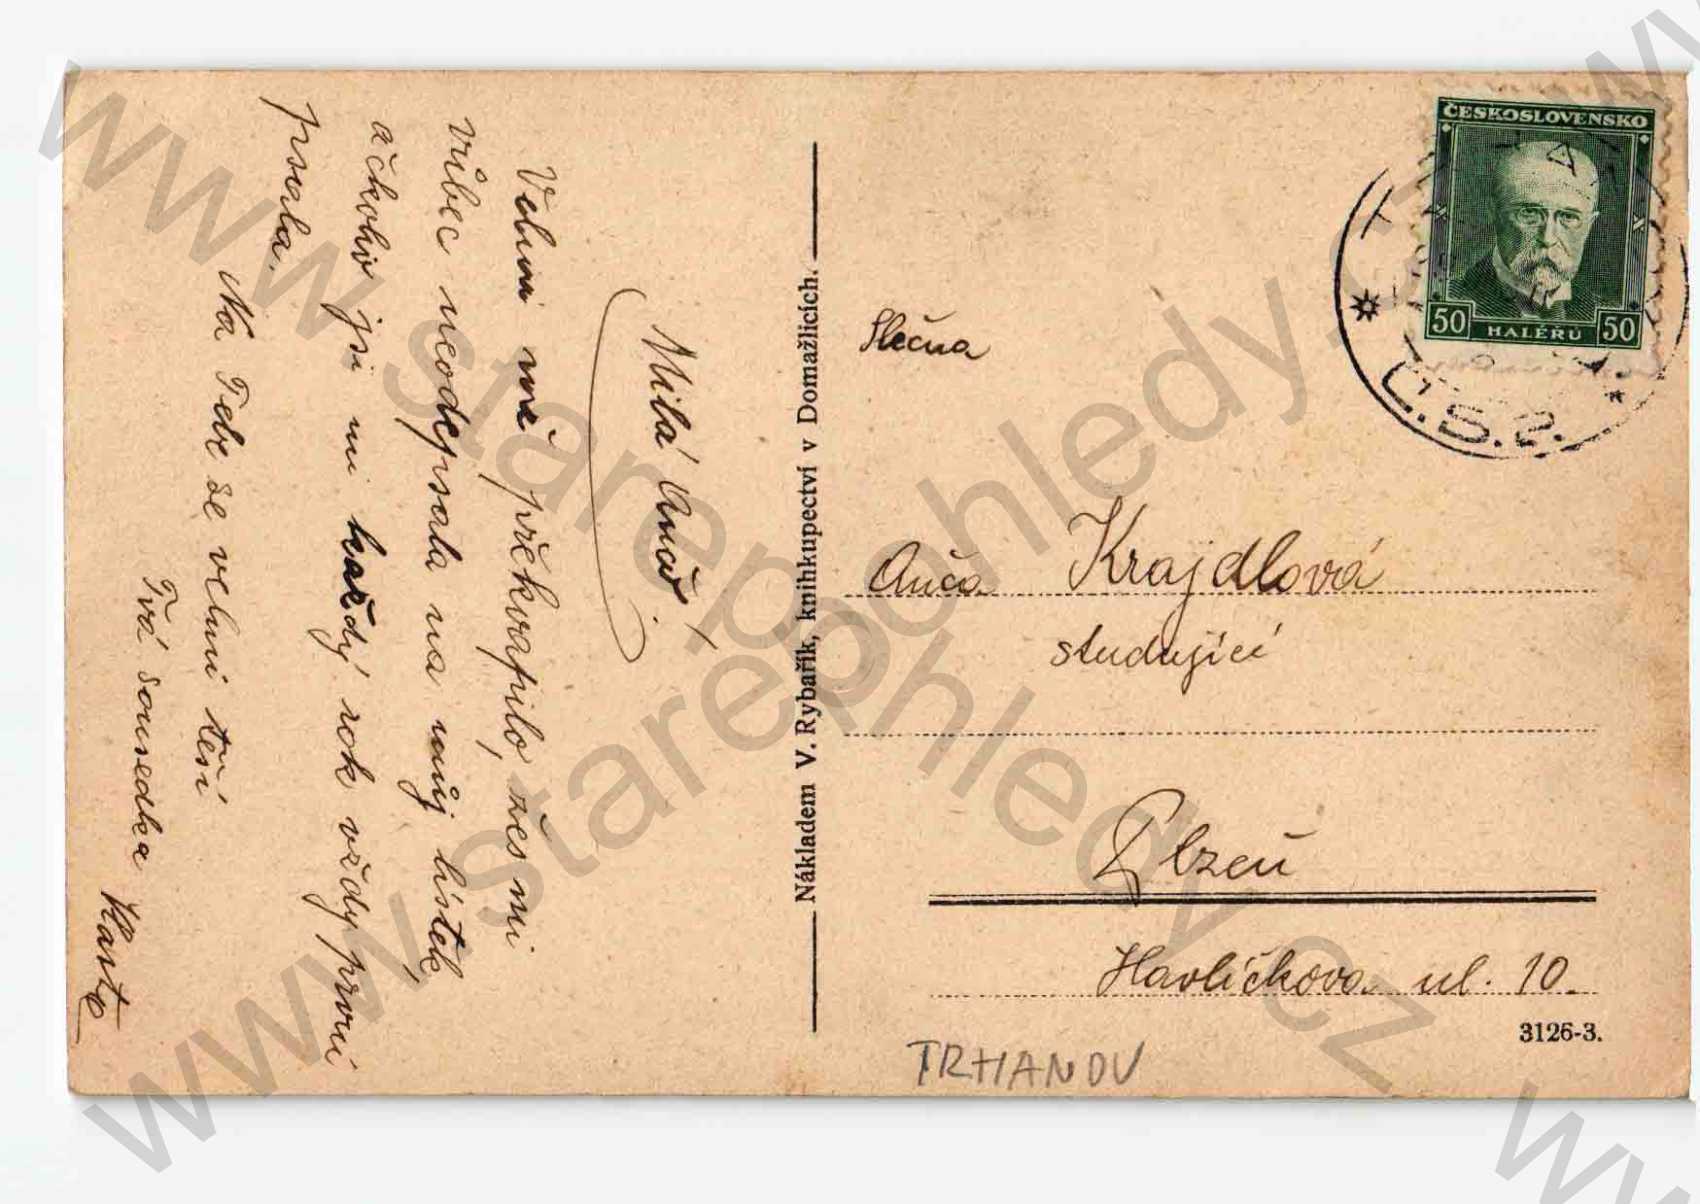 Milá Aučo!
Velmi mě překvapilo, žes mi
vůbec neodepsala na můj lístek
ačkoliv jsi mi každý rok vždy první
psala.
Na Tebe se velmi těší
Tvá sousedka
Nákladem V. Rybařík, knihkupectví v Domažlicích.
ČESKOSLOVENSKO
50 HALÉŘŮ 50
Č.S.2.
Slečna
Auča Krajdlová
studující
Plzeň
Havlíčkova ul. 10.
3126-3.
TRHANOV
www.starepohledy.cz
www.starepohledy.cz